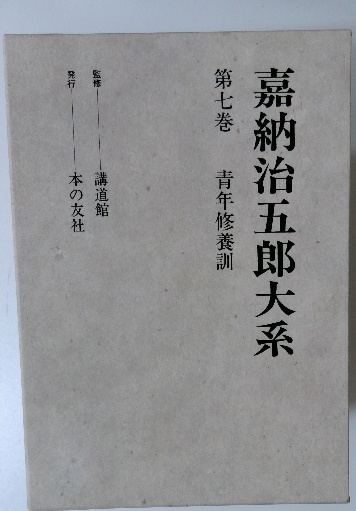 嘉納治五郎大系
第七巻　青年修養訓
監修────講道館
発行────本の友社